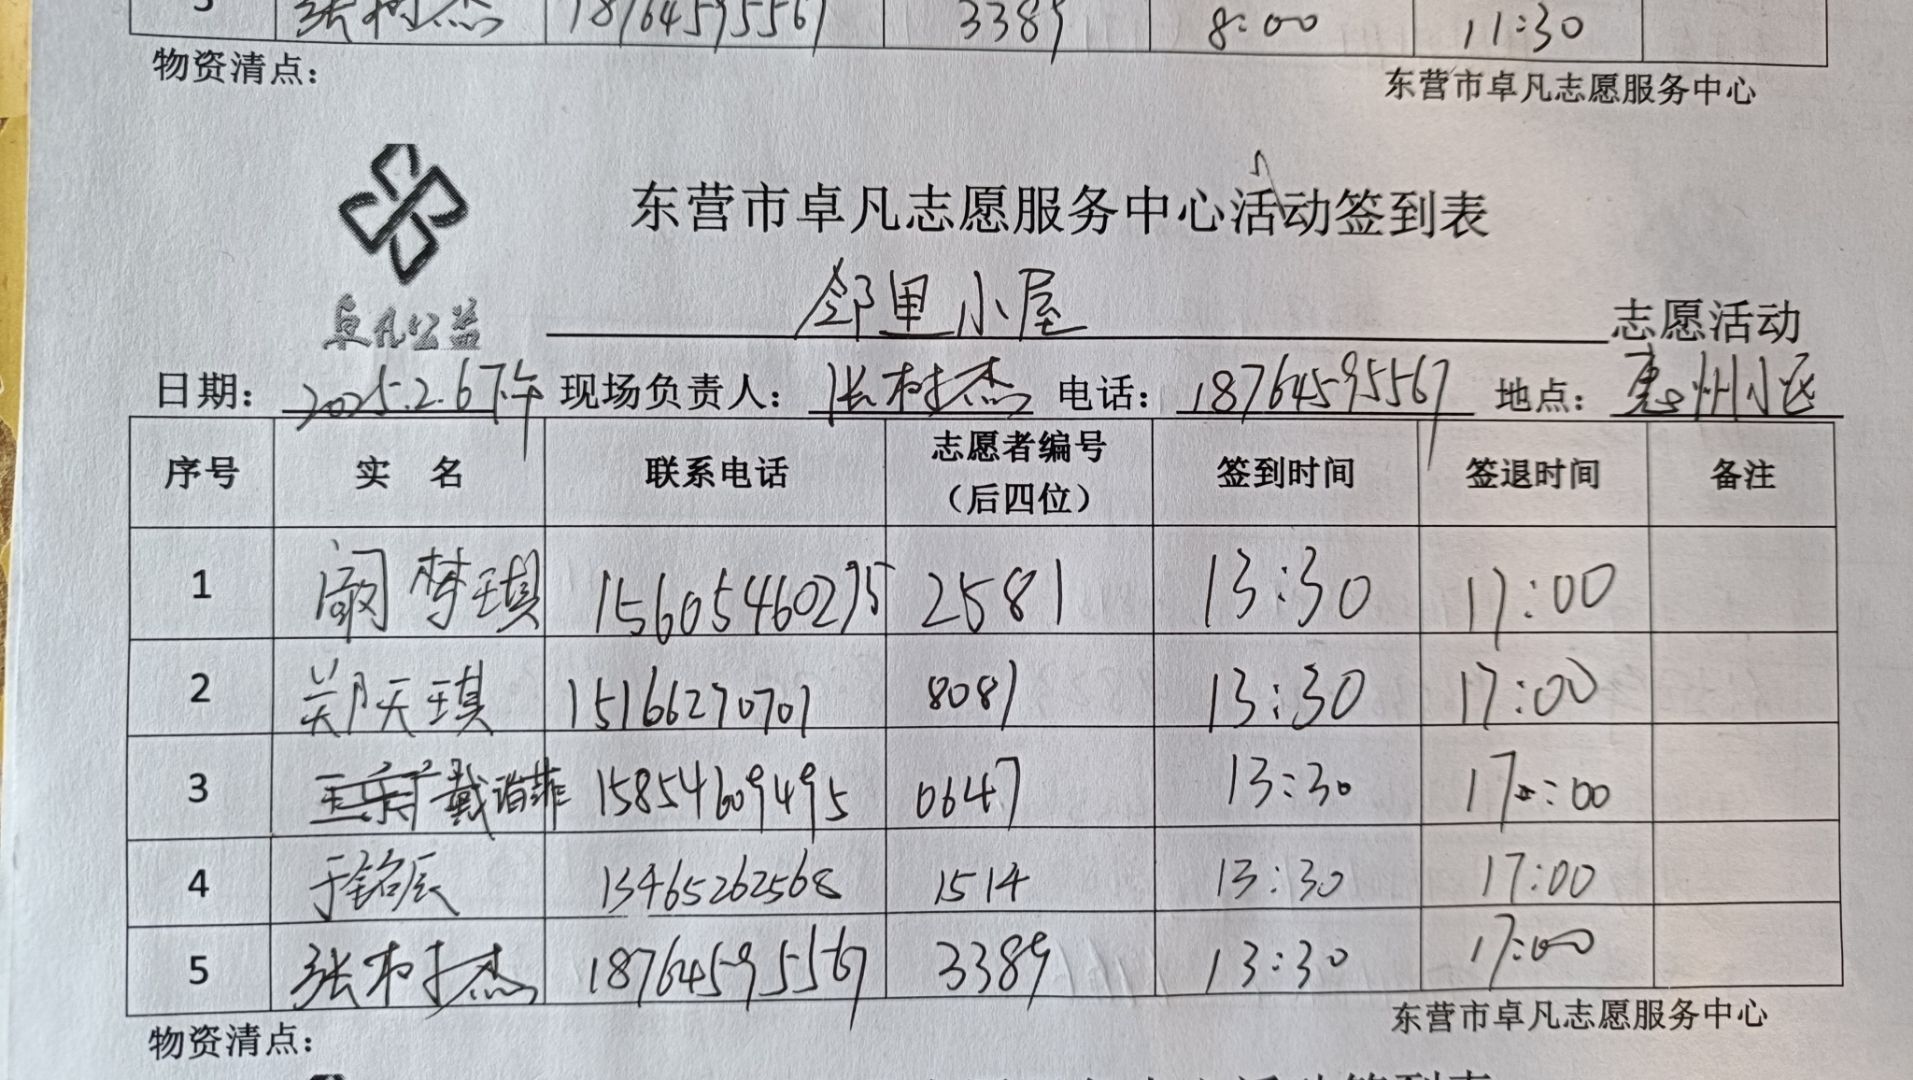 5 张树杰 18764595567 3389 8:00 11:30
物资清点：
东营市卓凡志愿服务中心
东营市卓凡志愿服务中心活动签到表
卓凡公益
邻里小屋 志愿活动
日期：2025.2.6下午 现场负责人：张树杰 电话：18764595567 地点：惠州小区
序号 实 名 联系电话 志愿者编号（后四位） 签到时间 签退时间 备注
1 阚梦琪 15605460275 2581 13:30 17:00
2 郑天琪 15166270701 8081 13:30 17:00
3 戴诣菲 15854609495 0647 13:30 17:00
4 于铭辰 13465262568 1514 13:30 17:00
5 张树杰 18764595567 3389 13:30 17:00
物资清点：
东营市卓凡志愿服务中心